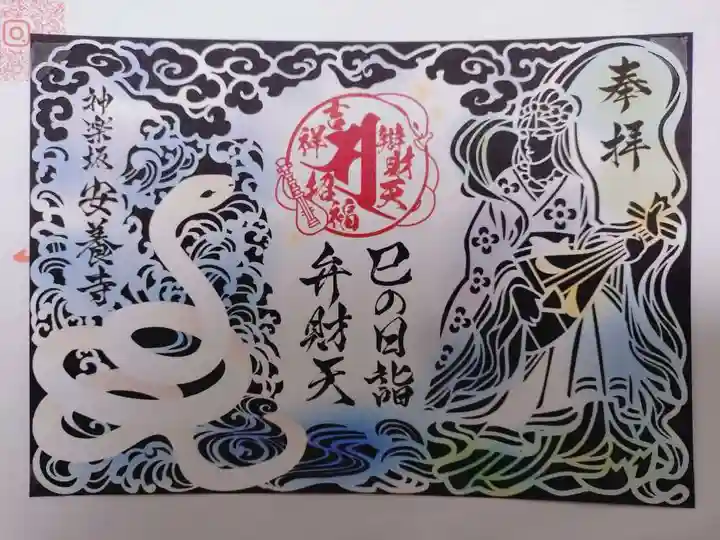 奉拝
巳の日詣
弁財天
吉祥招福
辯財天
神楽坂
安養寺